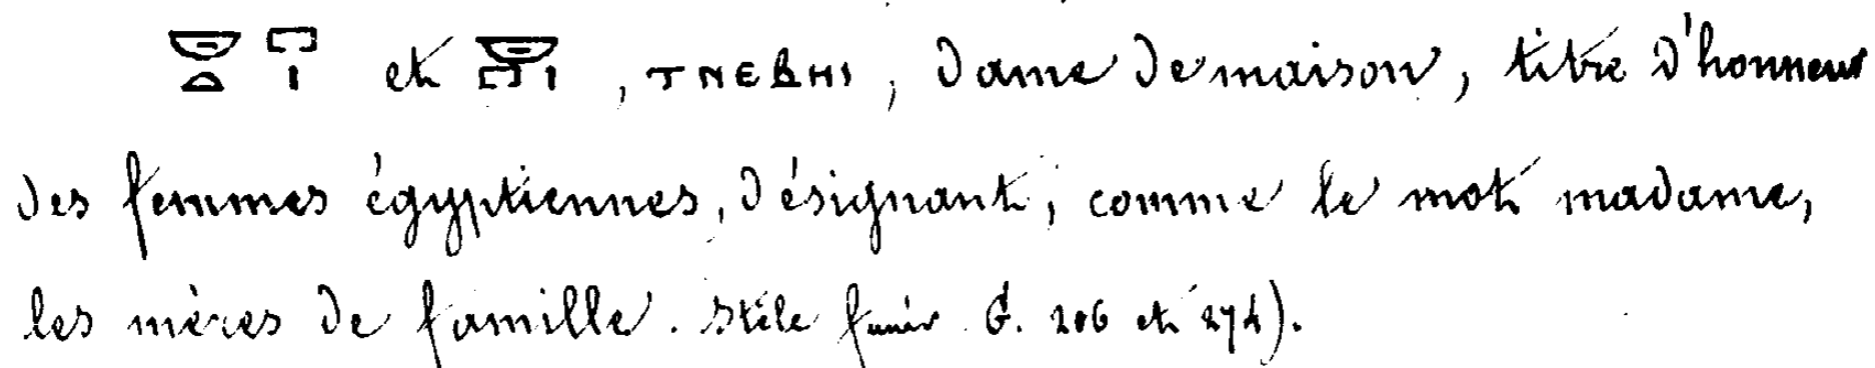 𓎟𓏏𓉐𓏤 et 𓎟𓉐𓏤, ⲧⲛⲉⲃⲏⲓ, dame de maison, titre d'honneur
des femmes égyptiennes, désignant, comme le mot madame,
les mères de famille. Stèle funér. 206 et 274).